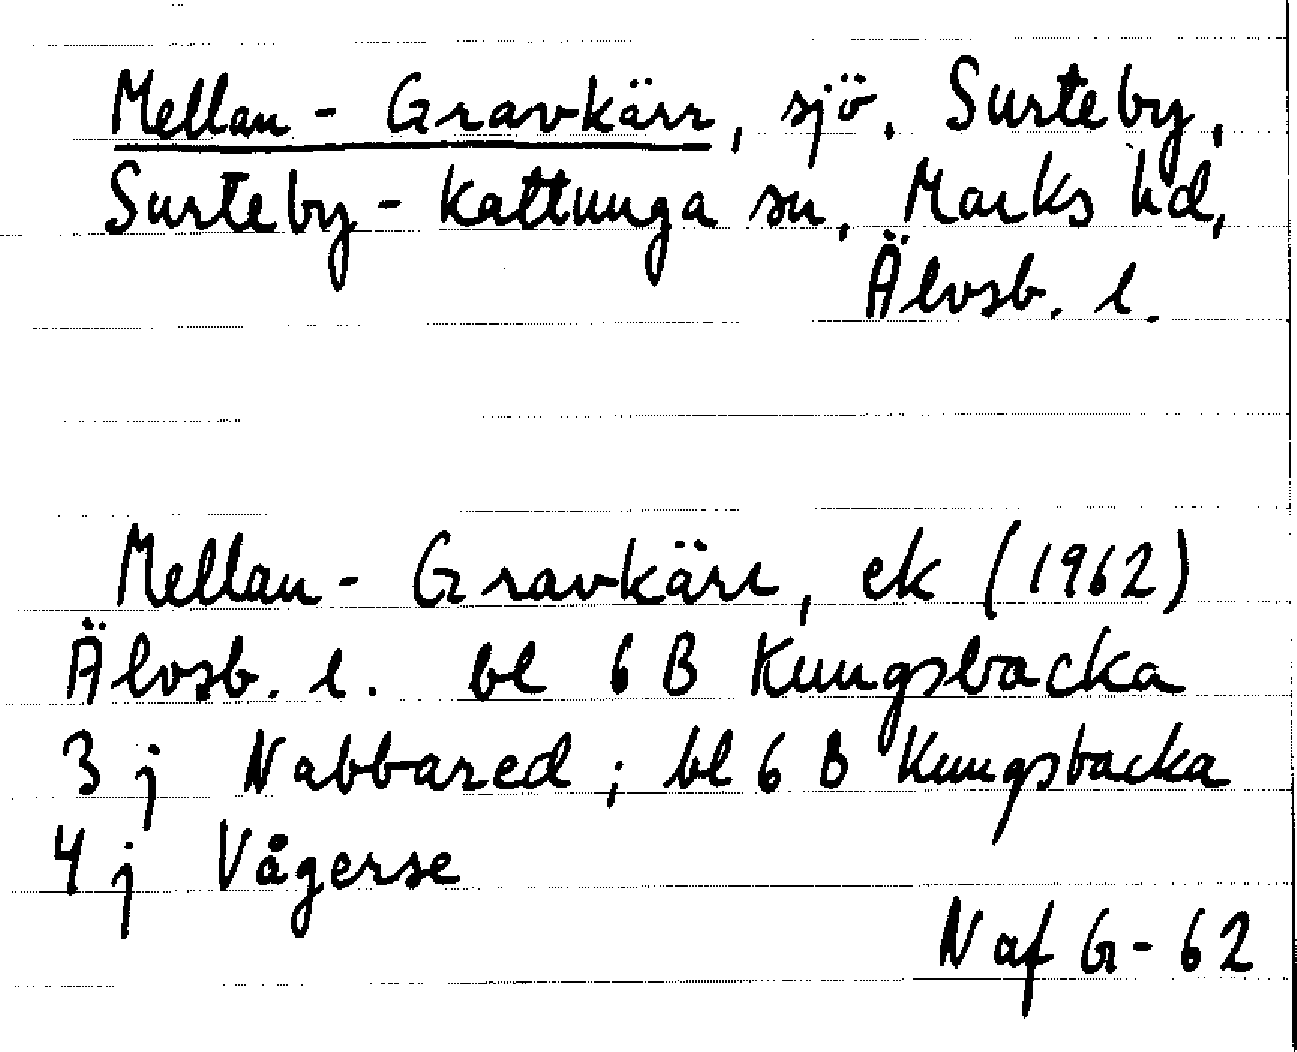 Mellan-Gravkärr, sjö, Surteby,
Surteby-Kattunga sn, Marks hd,
Älvsb. l.
Mellan-Gravkärr, ek (1962)
Älvsb. l. bl 6 B Kungsbacka
3 j Nabbared; bl 6 B Kungsbacka
4 j Vågerse
N af G-62